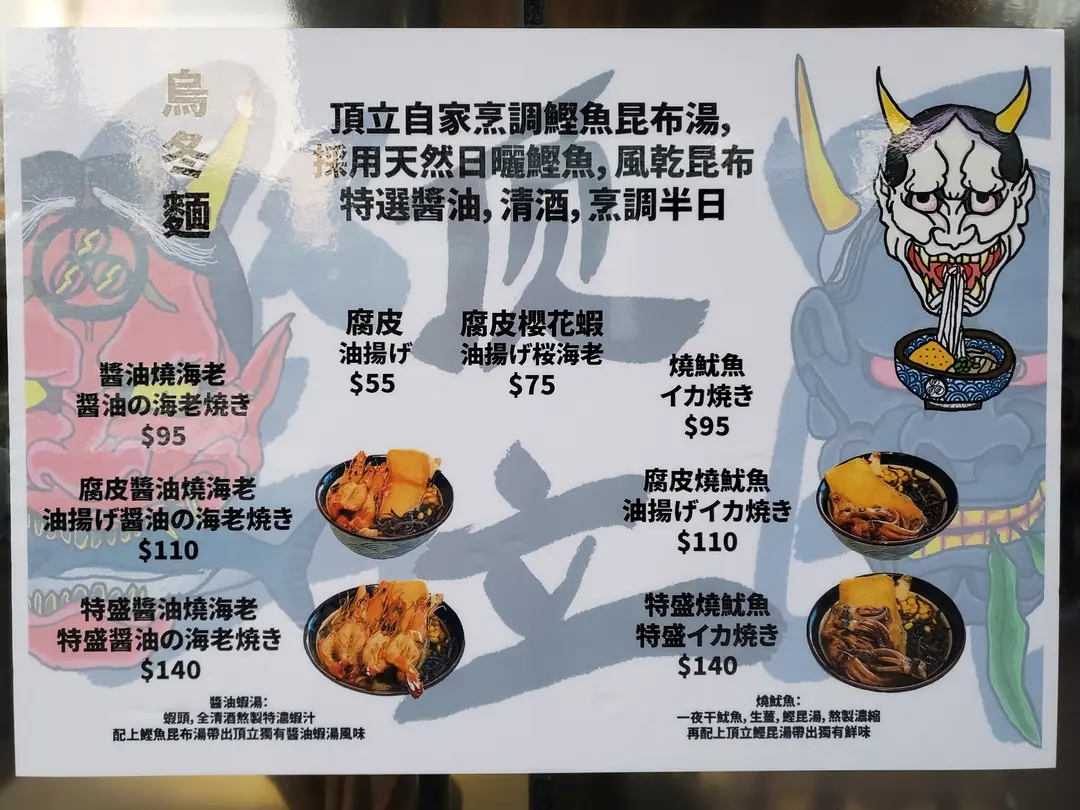 烏冬麵
頂立自家烹調鰹魚昆布湯,
採用天然日曬鰹魚, 風乾昆布
特選醬油, 清酒, 烹調半日
腐皮
油揚げ
$55
腐皮櫻花蝦
油揚げ桜海老
$75
醬油燒海老
醤油の海老焼き
$95
燒魷魚
イカ焼き
$95
腐皮醬油燒海老
油揚げ醤油の海老焼き
$110
腐皮燒魷魚
油揚げイカ焼き
$110
特盛醬油燒海老
特盛醤油の海老焼き
$140
特盛燒魷魚
特盛イカ焼き
$140
醬油蝦湯:
蝦頭, 全清酒熬製特濃蝦汁
配上鰹魚昆布湯帶出頂立獨有醬油蝦湯風味
燒魷魚:
一夜干魷魚, 生薑, 鰹昆湯, 熬製濃縮
再配上頂立鰹昆湯帶出獨有鮮味
頂立